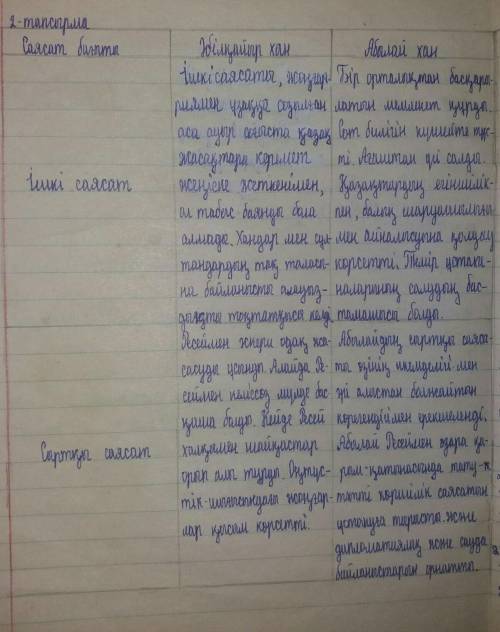 2-тапсырма
Саясат бағыты
Әбілқайыр хан
Абылай хан
Ішкі саясат
Ішкі саясаты, жоңғар-
риямен ұзаққа созылған
аса ауыр соғыста қазақ
жасақтары керемет
жеңіске жеткенімен,
ол табыс баянды бола
алмады. Хандар мен сұл-
тандардың тақ таласы-
на байланысты алауыз-
дықты тоқтатқысы келді
Бір орталықтан басқары-
латын мемлекет құрды.
Сот билігін күшейте түс-
ті. Ағаштан үй салды.
Қазақтардың егіншілік-
пен, балық шаруашылығы
мен айналысуына қолдау
көрсетті. Темір ұстаха-
наларының салудың бас-
тамашысы болды.
Сыртқы саясат
Ресеймен әскери одақ жа-
сасуды ұсынды. Алайда Ре-
сеймен келіссөз мүлде бас-
қаша болды. Кейде Ресей
халқымен шайқастар
орын алып тұрды. Оңтүс-
тік-шығыстағы жоңғар-
лар қысым көрсетті.
Абылайдың сыртқы саяса-
ты өзінің икемділігі мен
әрі алыстан болжайтын
көрегендігімен ерекшеленді.
Абылай Ресеймен өзара қа-
рым-қатынасында тату-
тәтті көршілік саясатын
ұстануға тырысты. және
дипломатиялық және сауда
байланыстарын орнатты.